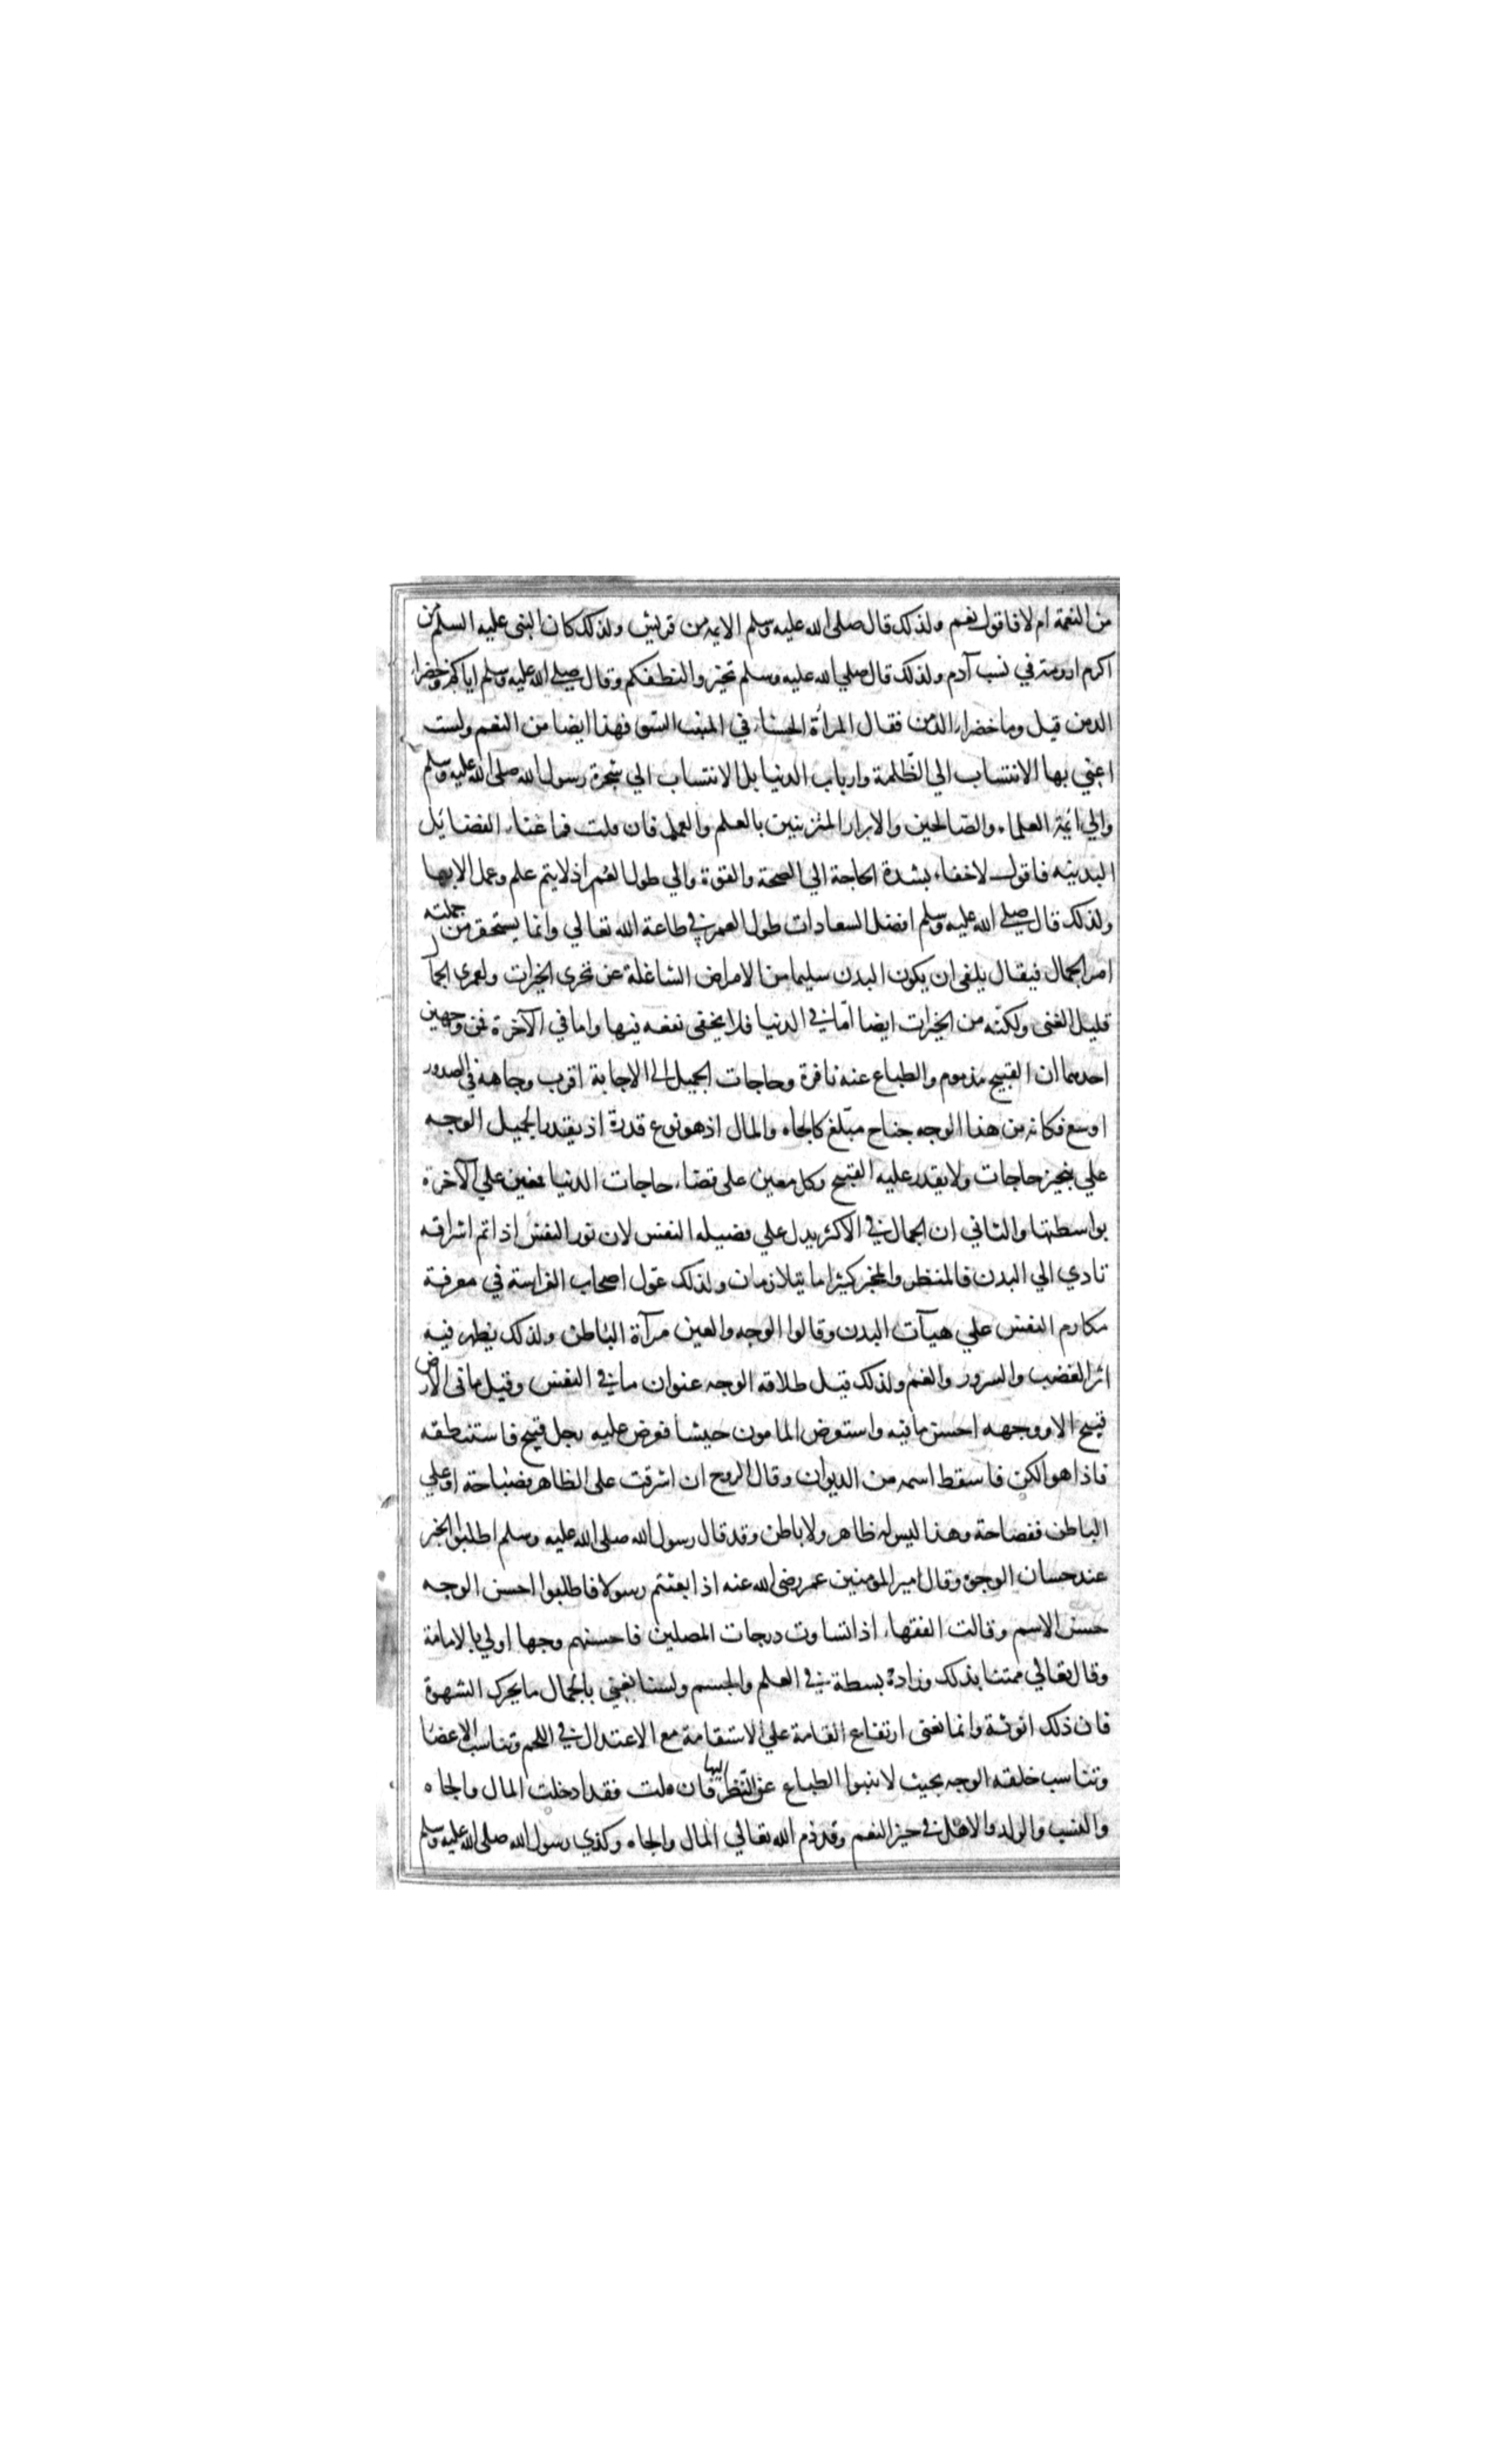 من النعمة ام لا فاقول نعم ولذلك قال صلى الله عليه وسلم الايمه من قريش ولذلك كان النبي عليه السلم من
اكرم ارومة في نسب آدم ولذلك قال صلي الله عليه وسلم تخيروا لنطفكم وقال صلي الله عليه وسلم اياكم وخضرا
الدمن قيل وما خضراء الدمن فقال المراة الحسناء في المنبت السوء فهذا ايضا من النعم ولست
اعني بها الانتساب الي الظلمة وارباب الدنيا بل الانتساب الي شجرة رسول الله صلى الله عليه وسلم
والي ائمة العلماء والصالحين والابرار المتزينين بالعلم والعمل فان قلت فما غناء الفضائل
البدنيه فاقول لاخفاء بشدة الحاجة الي الصحة والقوة والي طول العمر اذ لا يتم علم وعمل الا بها
ولذلك قال صلي الله عليه وسلم افضل السعادات طول العمر في طاعة الله تعالي وانما يستحقر من جملته
امر الجمال فيقال يكفي ان يكون البدن سليما من الامراض الشاغلة عن تحري الخيرات ولعمري الجما
قليل الغنى ولكنه من الخيرات ايضا اما في الدنيا فلا يخفى نفعه فيها واما في الآخرة فمن وجهين
احدهما ان القبيح مذموم والطباع عنه نافرة وحاجات الجميل الي الاجابة اقرب وجاهه في الصدور
اوسع فكانه من هذا الوجه جناح مبلغ كالجاه والمال اذ هو نوع قدرة اذ يقدر الجميل الوجه
علي تنجيز حاجات ولا يقدر عليه القبيح وكل معين على قضاء حاجات الدنيا فمعين علي الآخرة
بواسطتها والثاني ان الجمال في الاكثر يدل علي فضيله النفس لان نور النفس اذا تم اشراقه
تادي الي البدن فالمنظر والمخبر كثيرا ما يتلازمان ولذلك عول اصحاب الفراسة في معرفة
مكارم النفس علي هيآت البدن وقالوا الوجه والعين مرآة الباطن ولذلك يظهر فيه
اثر الغضب والسرور والغم ولذلك قيل طلاقه الوجه عنوان ما في النفس وقيل ما في الارض
قبيح الا ووجهه احسن ما فيه واستعرض المامون جيشا فعرض عليه رجل قبيح فاستنطقه
فاذا هو الكن فاسقط اسمه من الديوان وقال الروح ان اشرقت على الظاهر فصباحة او علي
الباطن ففصاحة وهذا ليس له ظاهر ولا باطن وقد قال رسول الله صلى الله عليه وسلم اطلبوا الخير
عند حسان الوجوه وقال امير المومنين عمر رضى الله عنه اذا بعثتم رسولا فاطلبوا احسن الوجه
حسن الاسم وقالت الفقهاء اذا تساوت درجات المصلين فاحسنهم وجها اولي بالامامة
وقال تعالي ممتنا بذلك وزاده بسطة في العلم والجسم ولسنا نعني بالجمال ما يحرك الشهوة
فان ذلك انوثة وانما نعني ارتفاع القامة علي الاستقامة مع الاعتدال في اللحم وتناسب الاعضا
وتناسب خلقه الوجه بحيث لا تنبوا الطباع عن النظر اليها فان قلت فقد ادخلت المال والجاه
والنسب والولد والاهل في حيز النعم وقد ذم الله تعالي المال والجاه وكذي رسول الله صلى الله عليه وسلم